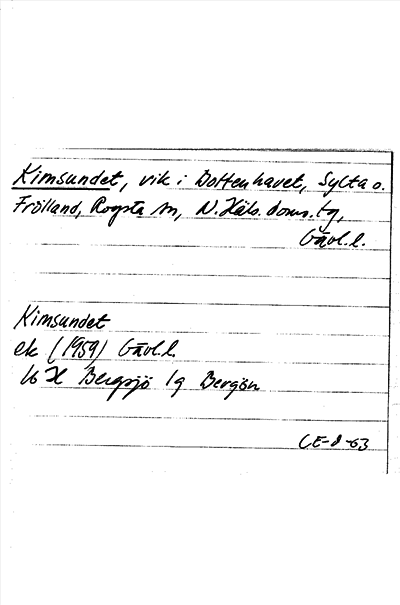 Kimsundet, vik i Bottenhavet, Sylta o.
Frölland, Rogsta sn, N. Häls. doms. tg,
Gävl.l.
Kimsundet
ek (1959) Gävl.l.
16 H Bergsjö 1g Bergön
CE-d-63